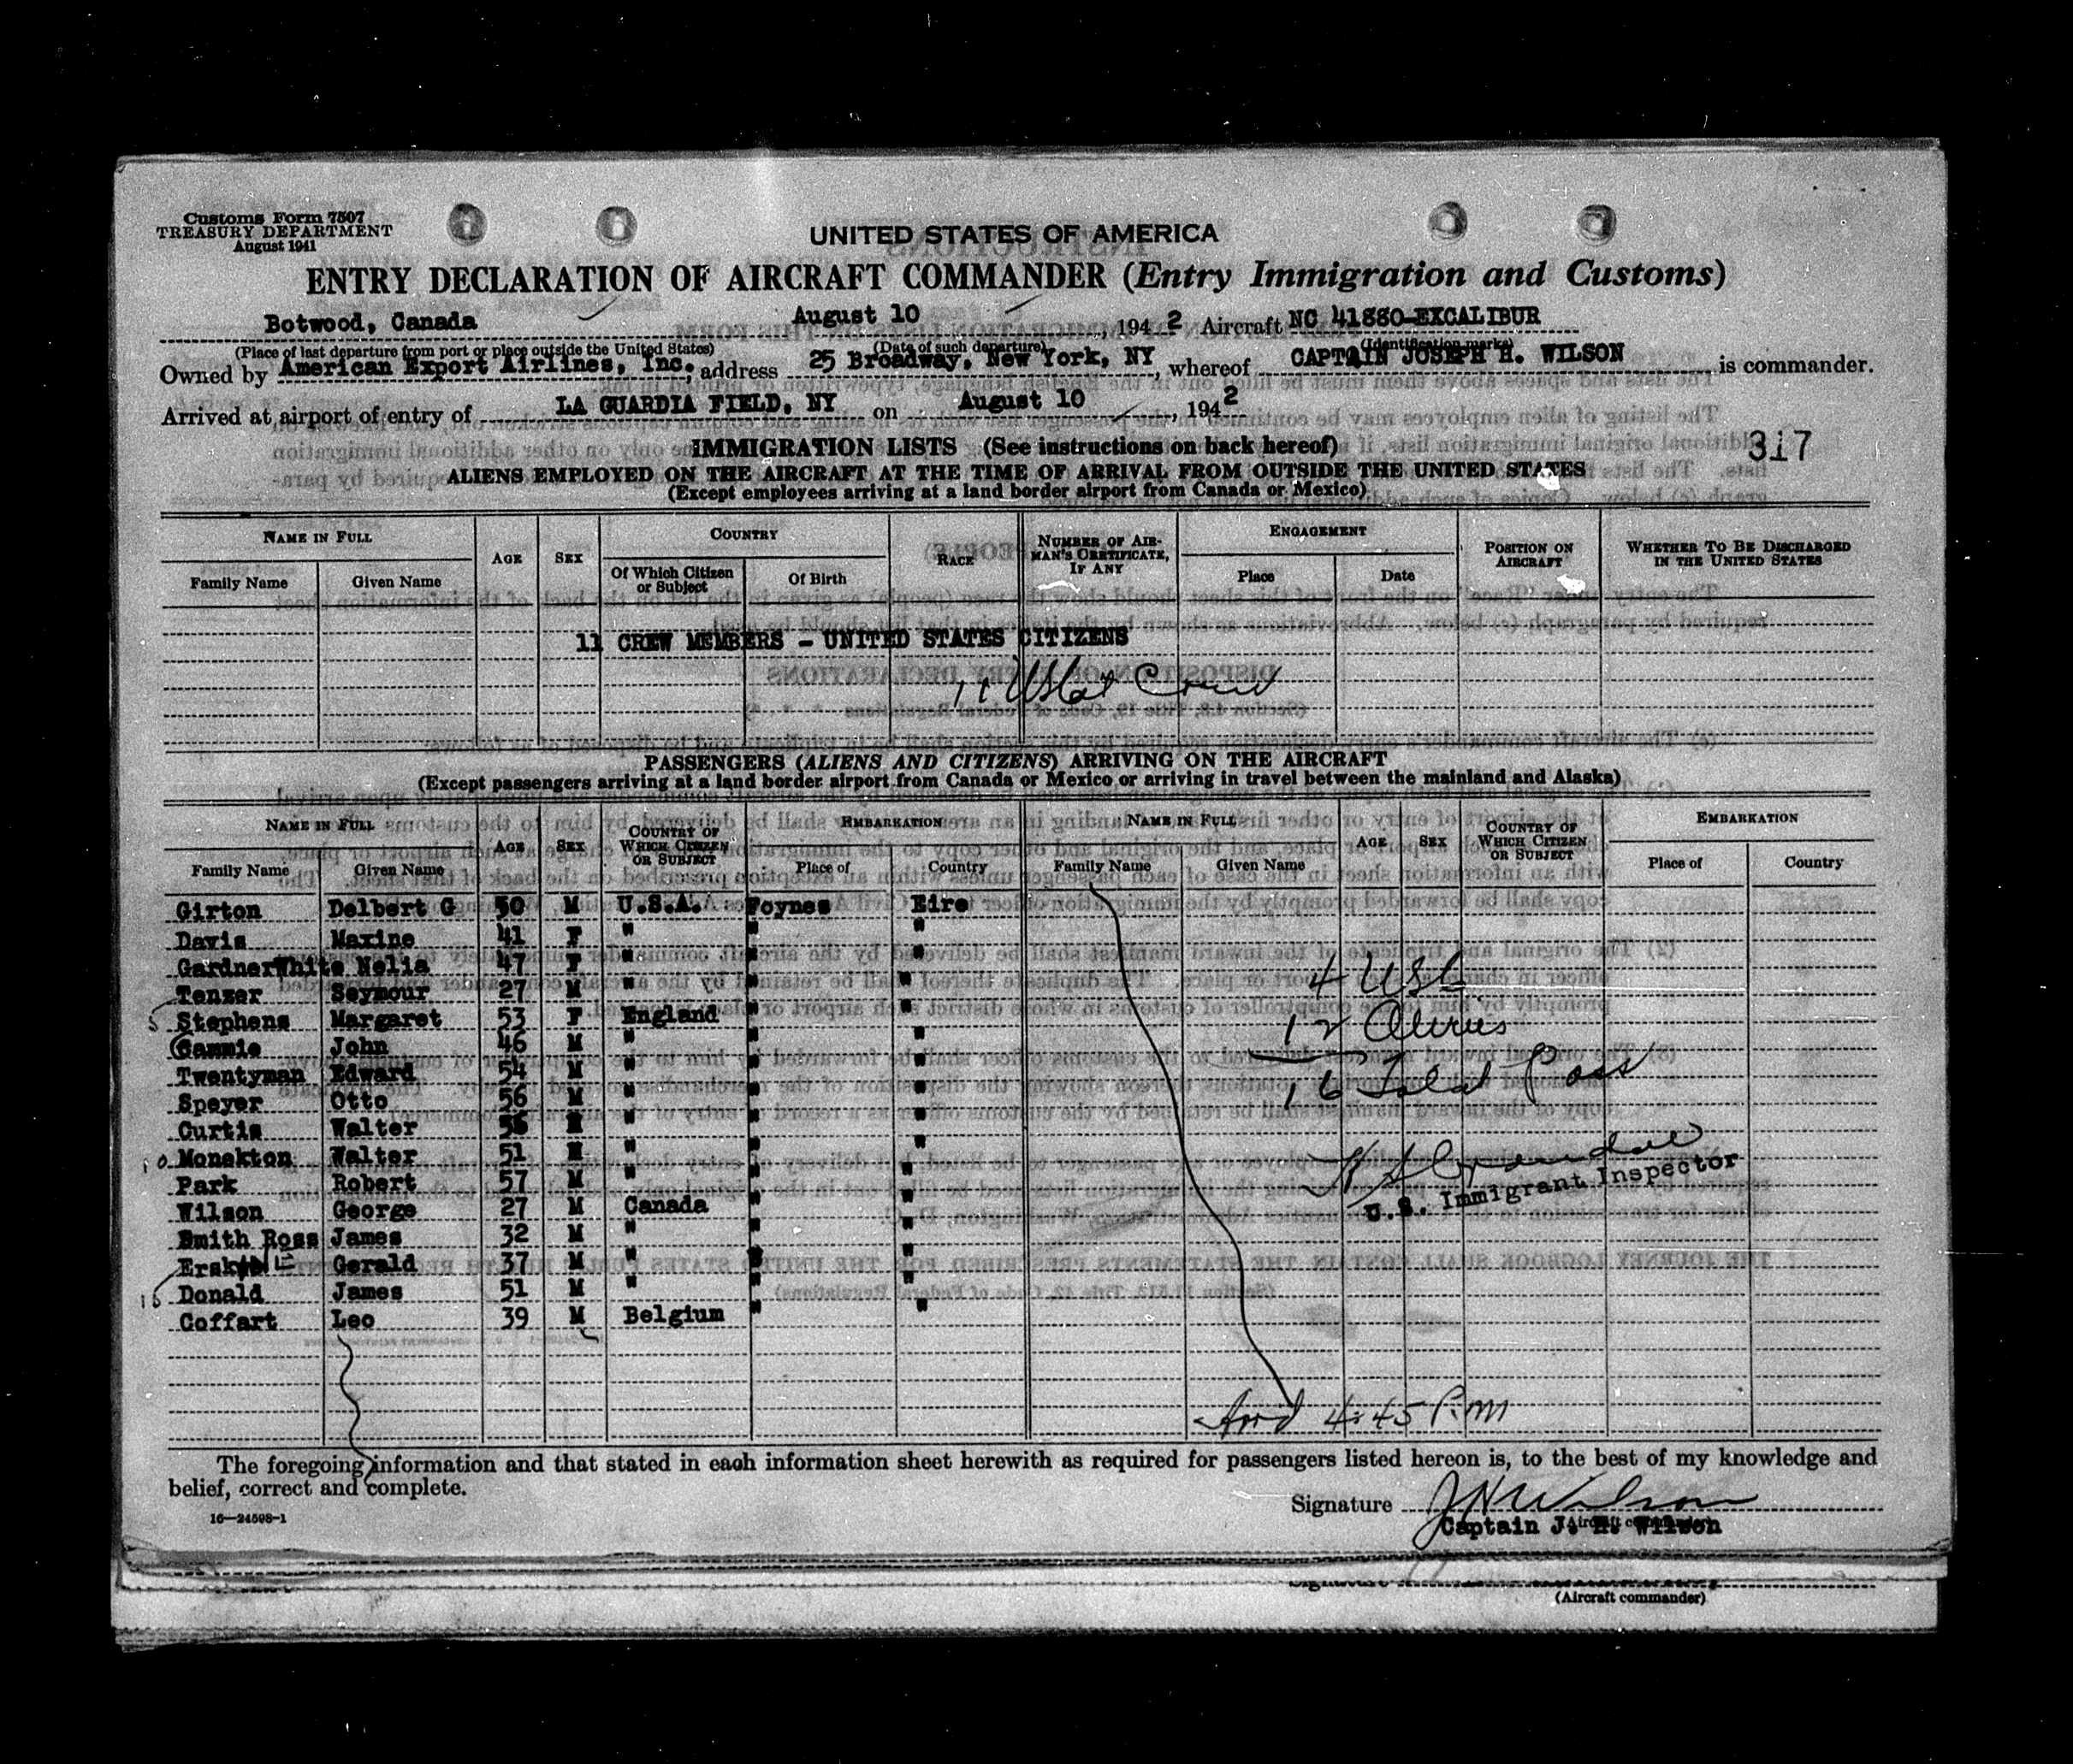 Customs Form 7507
TREASURY DEPARTMENT
August 1941
UNITED STATES OF AMERICA
ENTRY DECLARATION OF AIRCRAFT COMMANDER (Entry Immigration and Customs)
Botwood, Canada August 10, 1942 Aircraft NC 41880-EXCALIBUR
(Place of last departure from port or place outside the United States) (Date of such departure) (Identification marks)
Owned by American Export Airlines, Inc. address 25 Broadway, New York, NY, whereof CAPTAIN JOSEPH H. WILSON is commander.
Arrived at airport of entry of LA GUARDIA FIELD, NY on August 10, 1942
IMMIGRATION LISTS (See instructions on back hereof)
317
ALIENS EMPLOYED ON THE AIRCRAFT AT THE TIME OF ARRIVAL FROM OUTSIDE THE UNITED STATES
(Except employees arriving at a land border airport from Canada or Mexico)
NAME IN FULL AGE SEX COUNTRY RACE NUMBER OF AIRMAN'S CERTIFICATE, IF ANY ENGAGEMENT POSITION ON AIRCRAFT WHETHER TO BE DISCHARGED IN THE UNITED STATES
Family Name Given Name Of Which Citizen or Subject Of Birth Place Date
11 CREW MEMBERS - UNITED STATES CITIZENS
11 USCit Crew
PASSENGERS (ALIENS AND CITIZENS) ARRIVING ON THE AIRCRAFT
(Except passengers arriving at a land border airport from Canada or Mexico or arriving in travel between the mainland and Alaska)
NAME IN FULL AGE SEX COUNTRY OF WHICH CITIZEN OR SUBJECT EMBARKATION NAME IN FULL AGE SEX COUNTRY OF WHICH CITIZEN OR SUBJECT EMBARKATION
Family Name Given Name Place of Country Family Name Given Name Place of Country
Girton Delbert G 50 M U.S.A. Foynes Eire
Davis Maxine 41 F " " "
GardnerWhite Nelia 47 F " " "
Tenzer Seymour 27 M " " "
5 Stephens Margaret 53 F England " "
Gammie John 46 M " " "
Twentyman Edward 54 M " " "
Speyer Otto 56 M " " "
Curtis Walter M " " "
10 Monckton Walter 51 M " " "
Park Robert 57 M " " "
Wilson George 27 M Canada " "
Smith Ross James 32 M " " "
Gerald 37 M " " "
15 Donald James 51 M " " "
Goffart Leo 39 M Belgium " "
4 USC
12 Aliens
16 Total Pass
U.S. Immigrant Inspector
Arrd 4:45 P.M
The foregoing information and that stated in each information sheet herewith as required for passengers listed hereon is, to the best of my knowledge and
belief, correct and complete.
Signature J H Wilson
16—24598-1
Captain J. H. Wilson
(Aircraft commander)
Signature
(Aircraft commander)